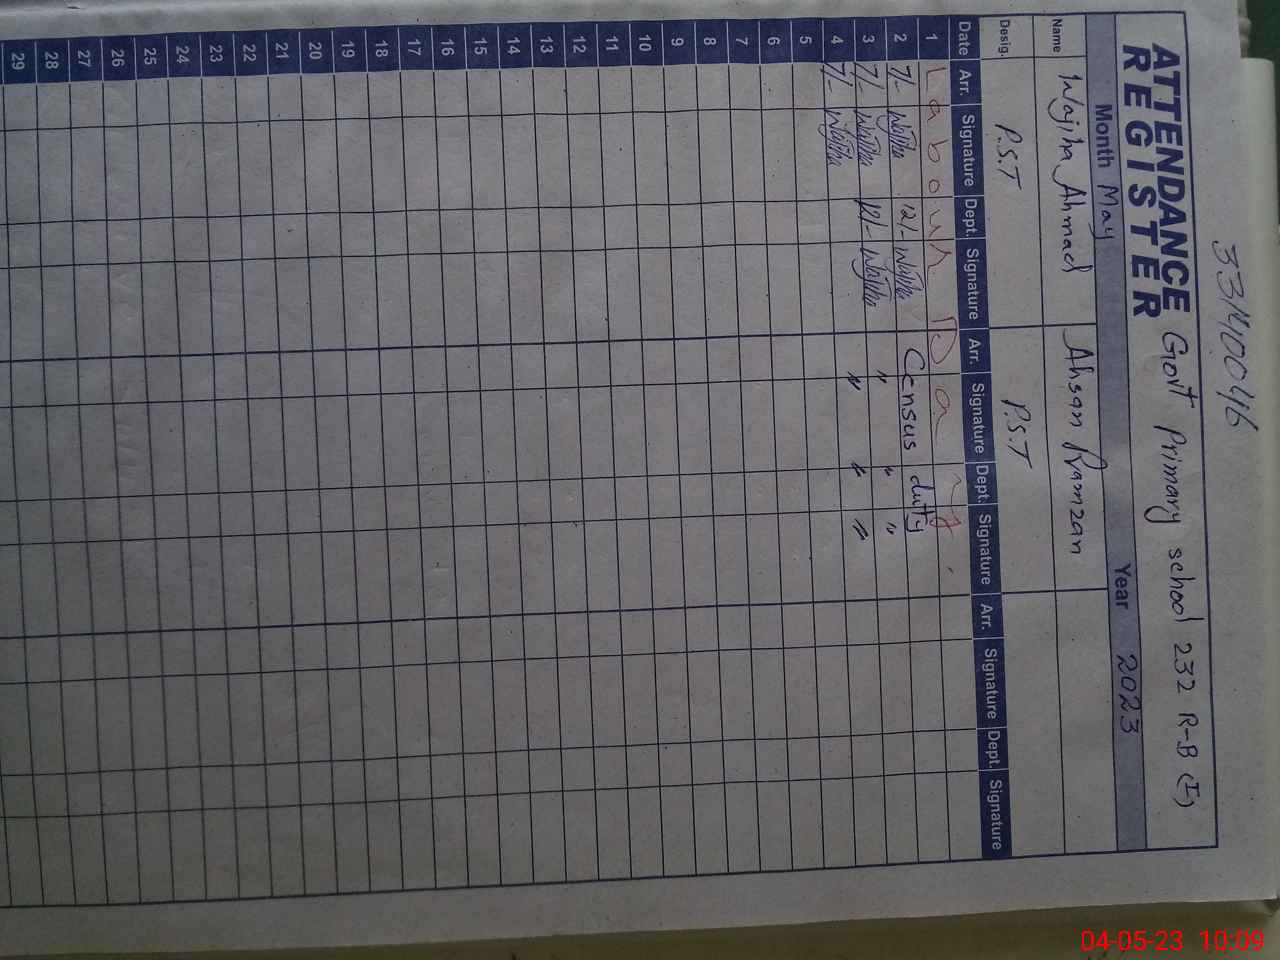 33410046
ATTENDANCE REGISTER Govt Primary school 232 R-B (I)
Month May Year 2023
Name Wajiha Ahmad Ahsan Ramzan
Desig. P.S.T P.S.T
Date Arr. Signature Dept. Signature Arr. Signature Dept. Signature Arr. Signature Dept. Signature
1 Labour Day
2 7/- Wajiha 12/- Wajiha Census duty
3 7/- Wajiha 12/- Wajiha " " "
4 7/- Wajiha " " "
5
6
7
8
9
10
11
12
13
14
15
16
17
18
19
20
21
22
23
24
25
26
27
28
29
04-05-23 10:09